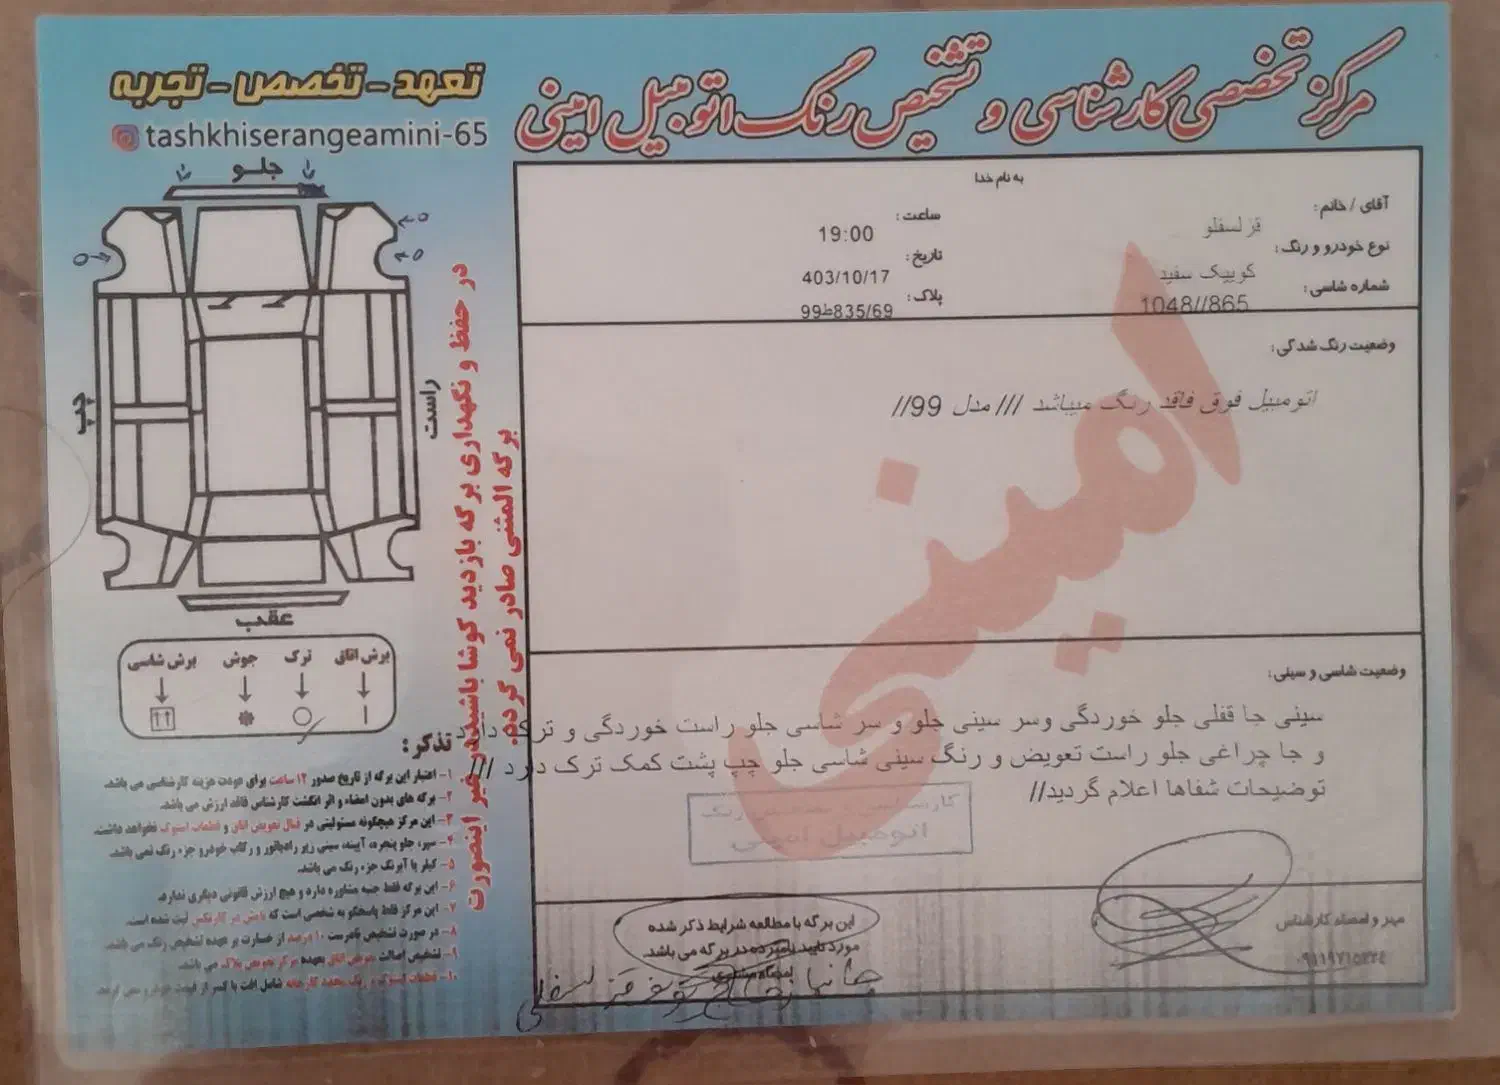 مرکز تخصصی کارشناسی و تشخیص رنگ اتومبیل امینی
تعهد - تخصص - تجربه
tashkhiserangeamini-65
به نام خدا
آقای / خانم:
قزلسفلو
نوع خودرو و رنگ:
کوییک سفید
شماره شاسی:
1048//865
ساعت:
19:00
تاریخ:
403/10/17
پلاک:
99ط835/69
وضعیت رنگ شدگی:
اتومبیل فوق فاقد رنگ میباشد /// مدل 99//
امینی
وضعیت شاسی و سینی:
سینی جا قفلی جلو خوردگی وسر سینی جلو و سر شاسی جلو راست خوردگی و ترک دارد
و جا چراغی جلو راست تعویض و رنگ سینی شاسی جلو چپ پشت کمک ترک دارد ///
توضیحات شفاها اعلام گردید//
کارشناسی و تشخیص رنگ
اتومبیل امینی
این برگه با مطالعه شرایط ذکر شده
مورد تایید نامبرده در برگه می باشد.
امضاء مشتری
مهر و امضاء کارشناس
جلو
چپ
راست
عقب
برش اتاق
ترک
جوش
برش شاسی
در حفظ و نگهداری برگه بازدید کوشا باشید در غیر اینصورت
برگه المثنی صادر نمی گردد.
تذکر:
۱- اعتبار این برگه از تاریخ صدور ۱۲ ساعت برای عودت هزینه کارشناسی می باشد.
۲- برگه های بدون امضاء و اثر انگشت کارشناس فاقد ارزش می باشد.
۳- این مرکز هیچگونه مسئولیتی در قبال تعویض اتاق و قطعات استوک نخواهد داشت.
۴- سپر، جلو پنجره، آیینه، سینی زیر رادیاتور و رکاب خودرو جزء رنگ نمی باشد.
۵- کیلر یا آبرنگ جزء رنگ می باشد.
۶- این برگه فقط جنبه مشاوره دارد و هیچ ارزش قانونی دیگری ندارد.
۷- این مرکز فقط پاسخگو به شخصی است که نامش در کارتکس ثبت شده است.
۸- در صورت تشخیص نادرست ۱۰ درصد از خسارت بر عهده تشخیص رنگ می باشد.
۹- تشخیص اصالت تعویض اتاق بعهده مرکز تعویض پلاک می باشد.